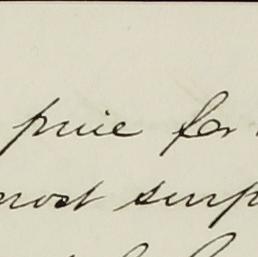 price for
most surp